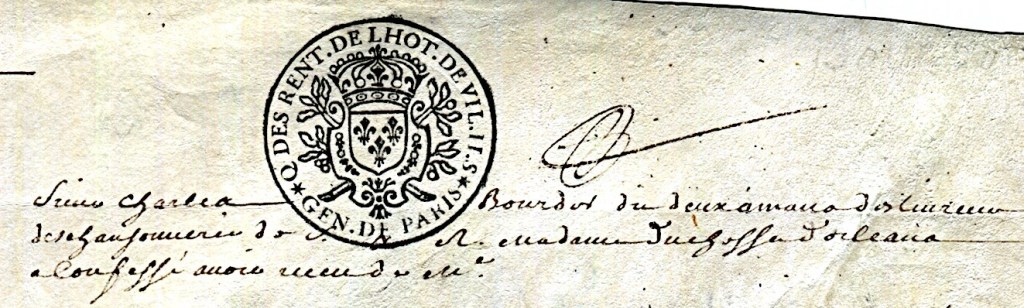 Q. DES RENT. DE LHOT. DE VIL. II. S
GEN. DE PARIS
Sieur Charles Bourdos du
de de S. A. R. Madame Duchesse d'orleans
a Confessé avoir receu de Mr.